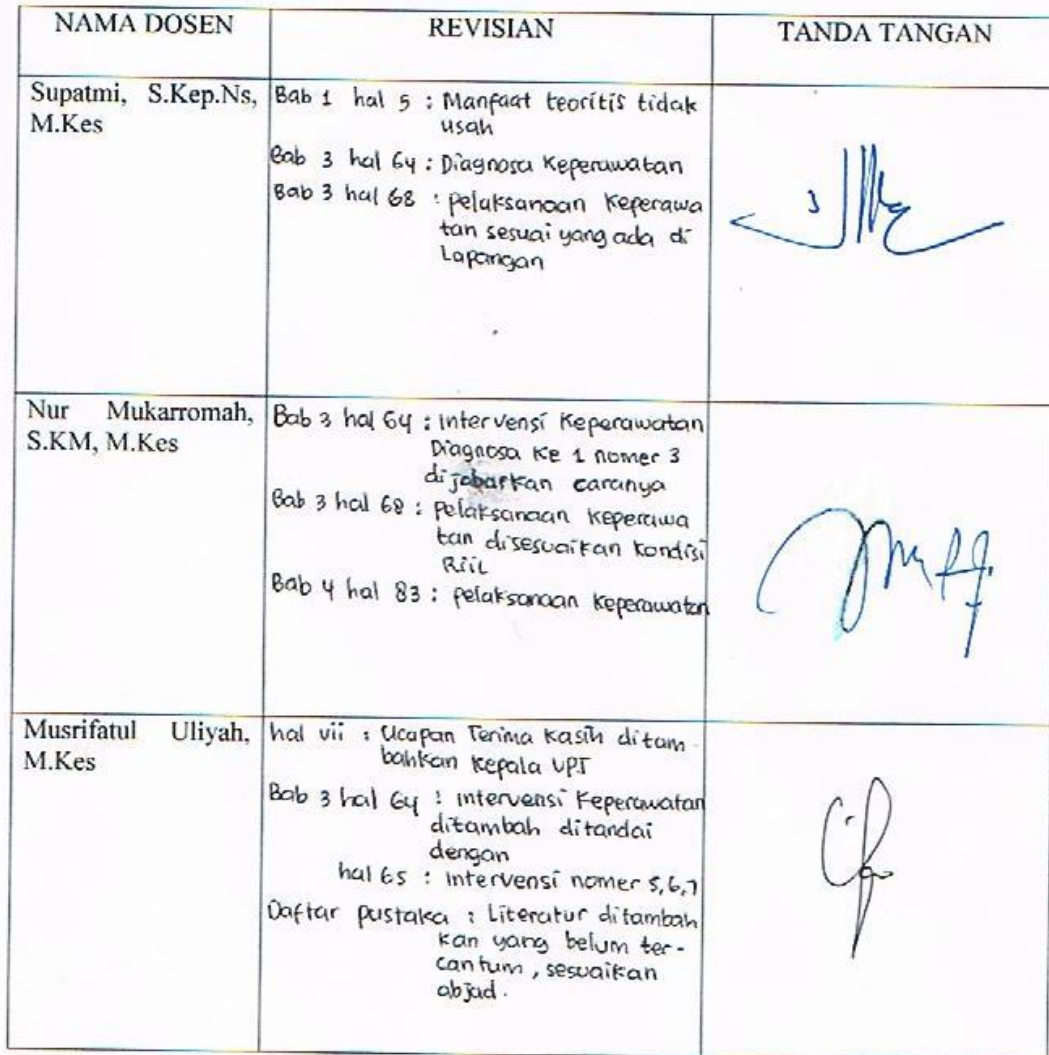 NAMA DOSEN
REVISIAN
TANDA TANGAN
Supatmi, S.Kep.Ns,
M.Kes
Bab 1 hal 5 : Manfaat teoritis tidak
usah
Bab 3 hal 64 : Diagnosa Keperawatan
Bab 3 hal 68 : pelaksanaan Keperawa
tan sesuai yang ada di
Lapangan
Nur Mukarromah,
S.KM, M.Kes
Bab 3 hal 64 : intervensi Keperawatan
Diagnosa Ke 1 nomer 3
dijabarkan caranya
Bab 3 hal 68 : pelaksanaan Keperawa
tan disesuaikan kondisi
Riil
Bab 4 hal 83 : pelaksanaan Keperawatan
Musrifatul Uliyah,
M.Kes
hal vii : Ucapan Terima Kasih ditam
bahkan kepala UPT
Bab 3 hal 64 : intervensi Keperawatan
ditambah ditandai
dengan
hal 65 : intervensi nomer 5,6,7
Daftar pustaka : Literatur ditambah
kan yang belum ter-
cantum, sesuaikan
abjad.